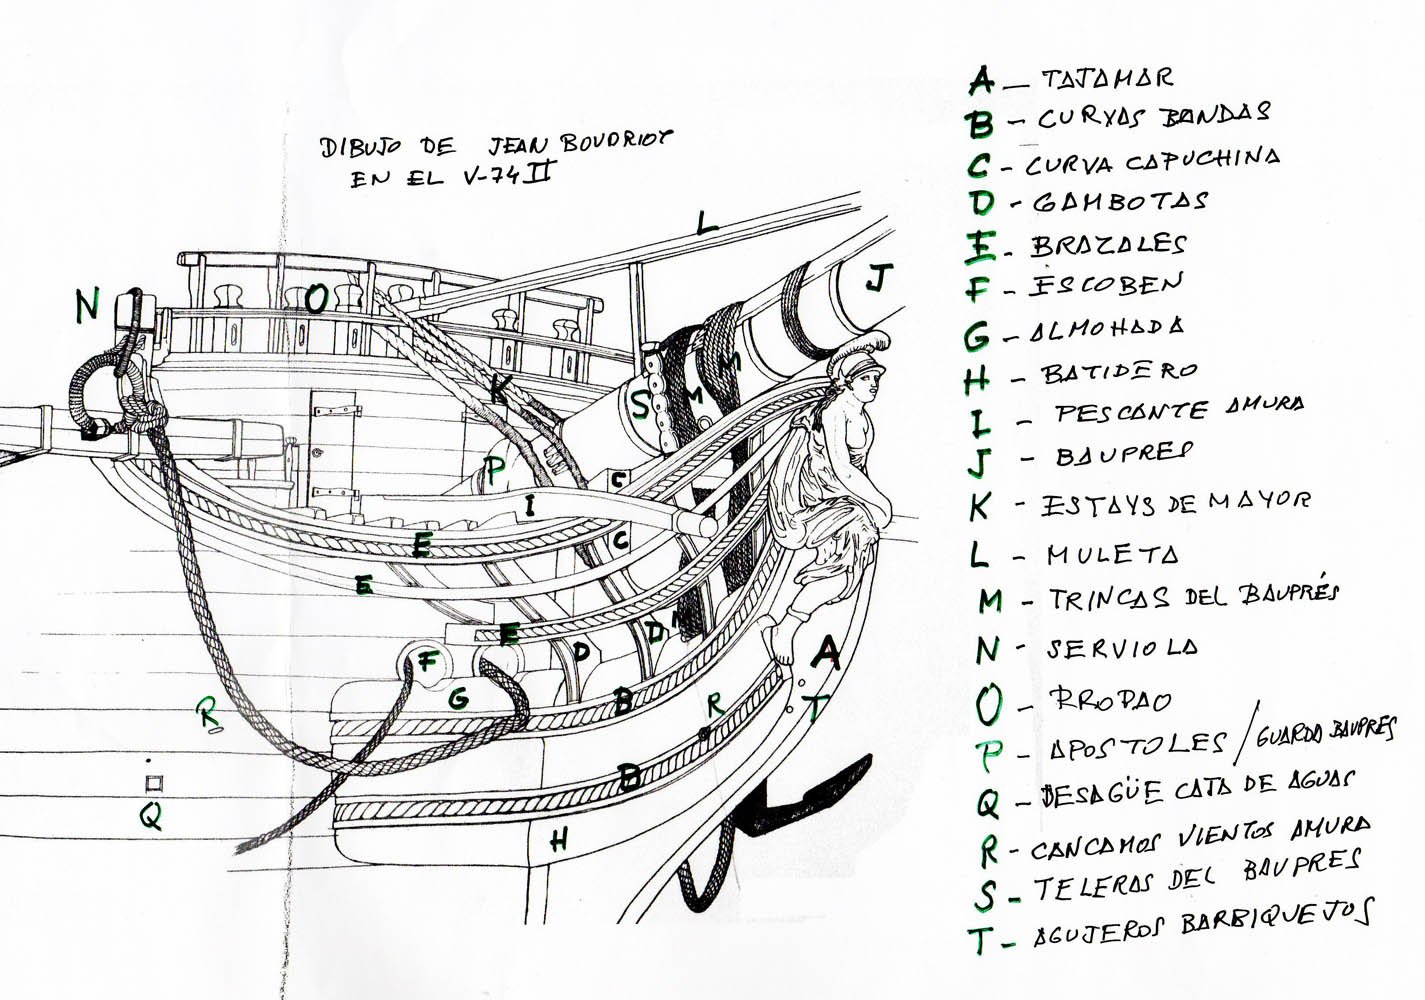 DIBUJO DE JEAN BOUDRIOT
EN EL V-74 II
A - TAJAMAR
B - CURVAS BANDAS
C - CURVA CAPUCHINA
D - GAMBOTAS
E - BRAZALES
F - ESCOBEN
G - ALMOHADA
H - BATIDERO
I - PESCANTE AMURA
J - BAUPRES
K - ESTAYS DE MAYOR
L - MULETA
M - TRINCAS DEL BAUPRÉS
N - SERVIOLA
O - PROPAO
P - APOSTOLES / GUARDA BAUPRES
Q - DESAGÜE CAJA DE AGUAS
R - CANCAMOS VIENTOS AMURA
S - TELERAS DEL BAUPRES
T - AGUJEROS BARBIQUEJOS
L
J
N
O
M
K
S
M
P
C
I
E
C
E
E
M
D
D
F
A
G
B
R
T
R
B
Q
H